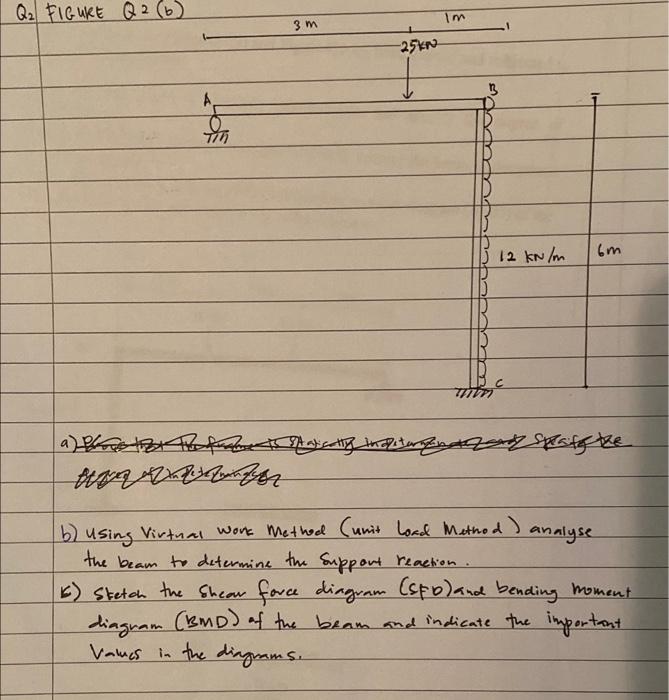 Q2 FIGURE Q2(b)
3m 1m
25kN
A B
12 kN/m 6m
C
a)
b) Using Virtual Work Method (unit Load Method) analyse
the beam to determine the Support reaction.
c) Sketch the Shear force diagram (SFD) and bending moment
diagram (BMD) of the beam and indicate the important
Values in the diagrams.